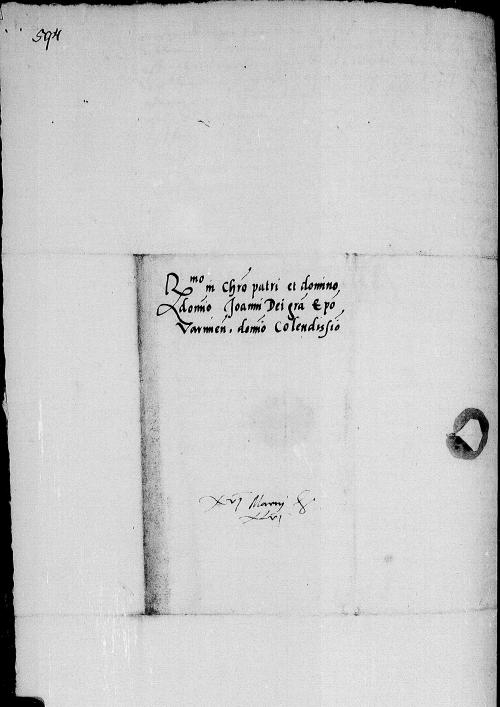 594
Rmo in Chro patri et domino
domio Joanni Dei gra Epo
Varmien. domio Colendissio
XVI
XLVI